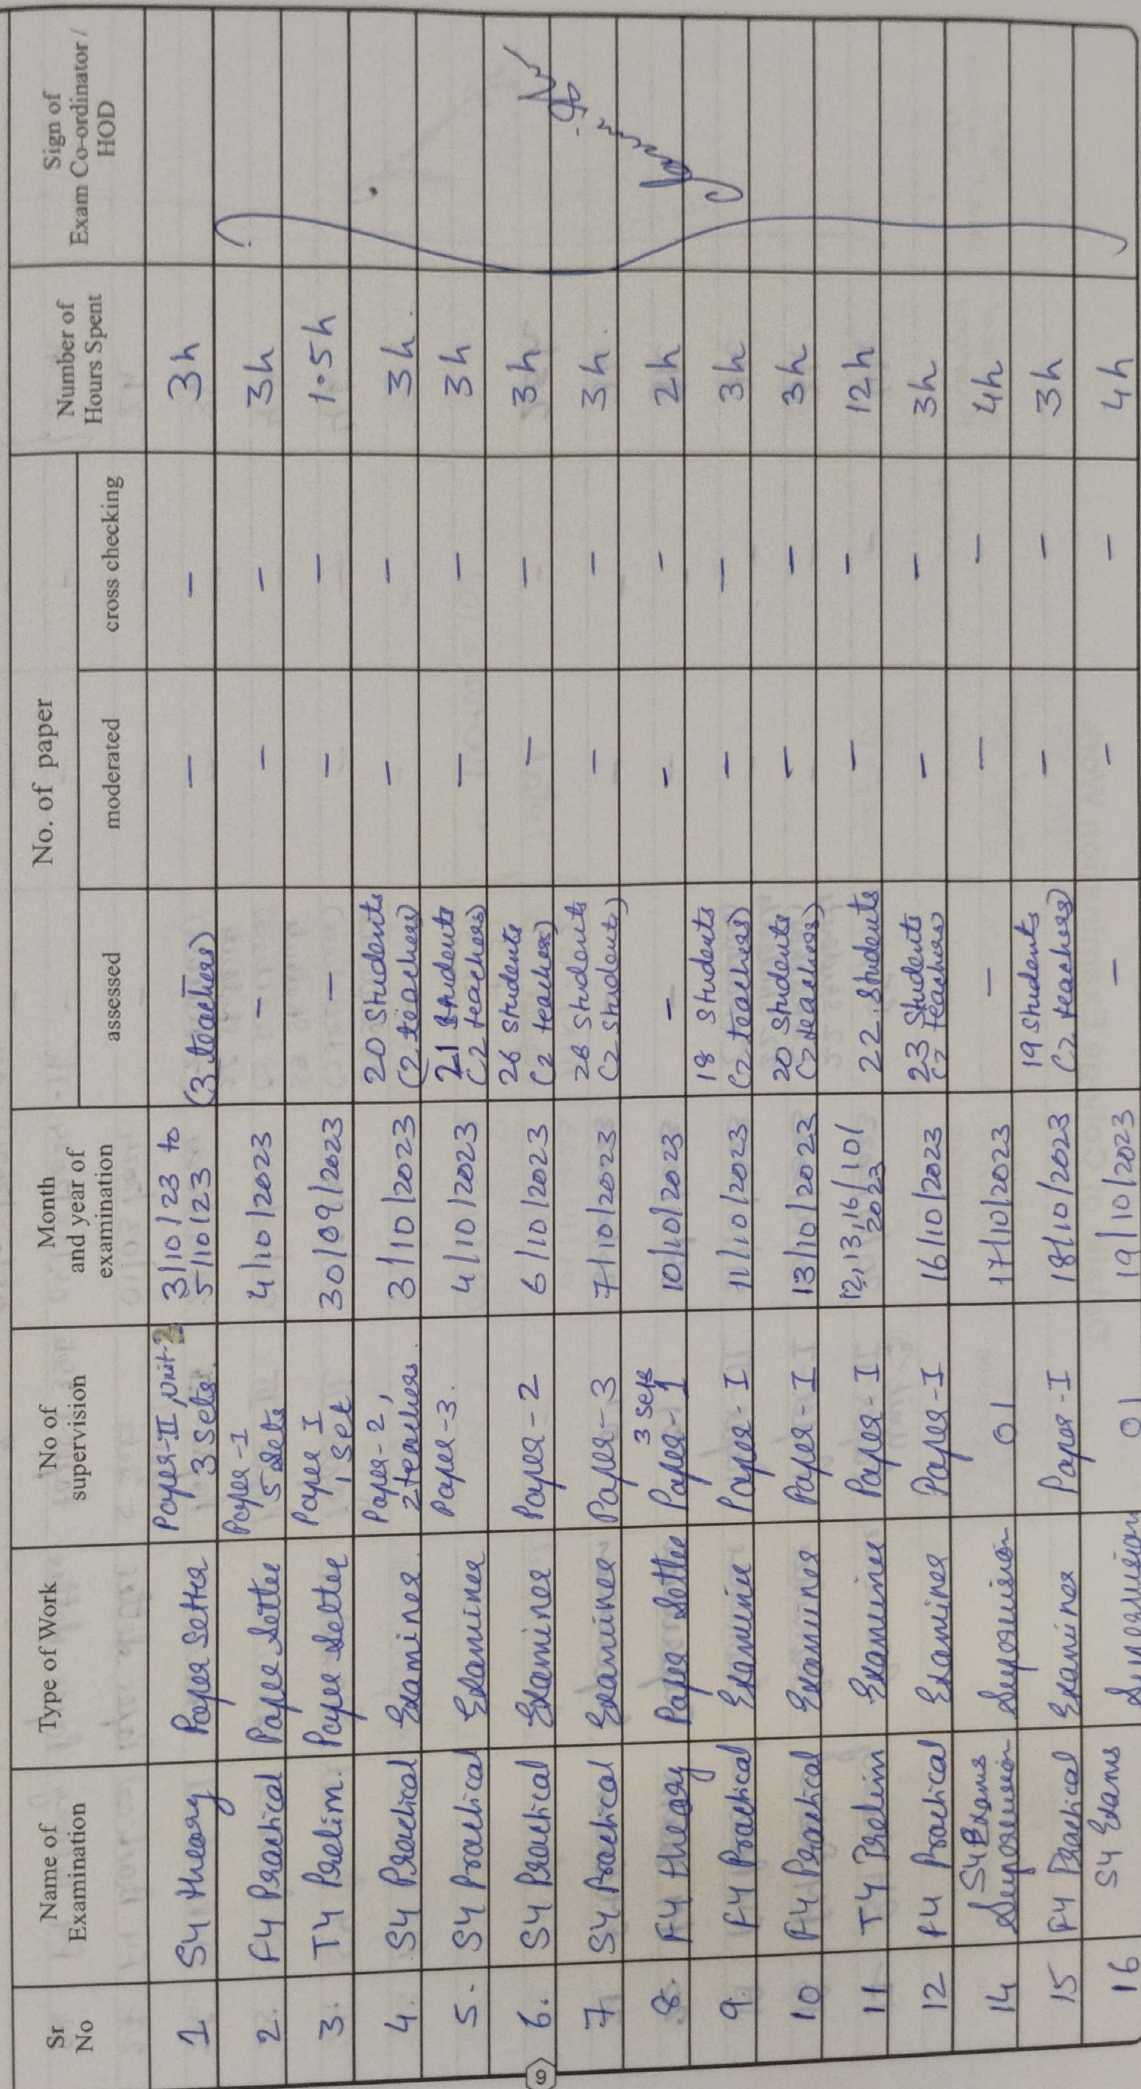 Sr No | Name of Examination | Type of Work | No of supervision | Month and year of examination | No. of paper: assessed | moderated | cross checking | Number of Hours Spent | Sign of Exam Co-ordinator / HOD
1 | SY Theory | Paper Setter | Paper-II, Unit-2 3 Sets. | 3/10/23 to 5/10/23 | – (3 teachers) | – | – | 3h
2. | FY Practical | Paper Setter | Paper-1 5 Sets | 4/10/2023 | – | – | – | 3h
3. | TY Prelim. | Paper Setter | Paper I 1 Set | 30/09/2023 | – | – | – | 1.5h
4. | SY Practical | Examiner. | Paper-2, 2 teachers. | 3/10/2023 | 20 Students (2 teachers) | – | – | 3h
5. | SY Practical | Examiner | Paper-3. | 4/10/2023 | 21 Students (2 teachers) | – | – | 3h
6. | SY Practical | Examiner | Paper-2 | 6/10/2023 | 26 Students (2 teachers) | – | – | 3h
7 | SY Practical | Examiner | Paper-3 | 7/10/2023 | 26 Students (2 Students) | – | – | 3h.
8. | FY Theory | Paper Setter | 3 Sets Paper-1 | 10/10/2023 | – | – | – | 2h
9. | FY Practical | Examiner | Paper-I | 11/10/2023 | 18 Students (2 teachers) | – | – | 3h
10 | FY Practical | Examiner | Paper-I | 13/10/2023 | 20 Students (2 teachers) | – | – | 3h
11 | TY Prelim | Examiner | Paper-I | 12,13,16/10/2023 | 22 Students | – | – | 12h
12 | FY Practical | Examiner | Paper-I | 16/10/2023 | 23 Students (2 teachers | – | – | 3h
14 | SY Exams Supervision | Supervision | 01 | 17/10/2023 | – | – | – | 4h
15 | FY Practical | Examiner | Paper-I | 18/10/2023 | 19 Students (2 teachers) | – | – | 3h
16 | SY Exams | Supervision | 01 | 19/10/2023 | – | – | – | 4h
9